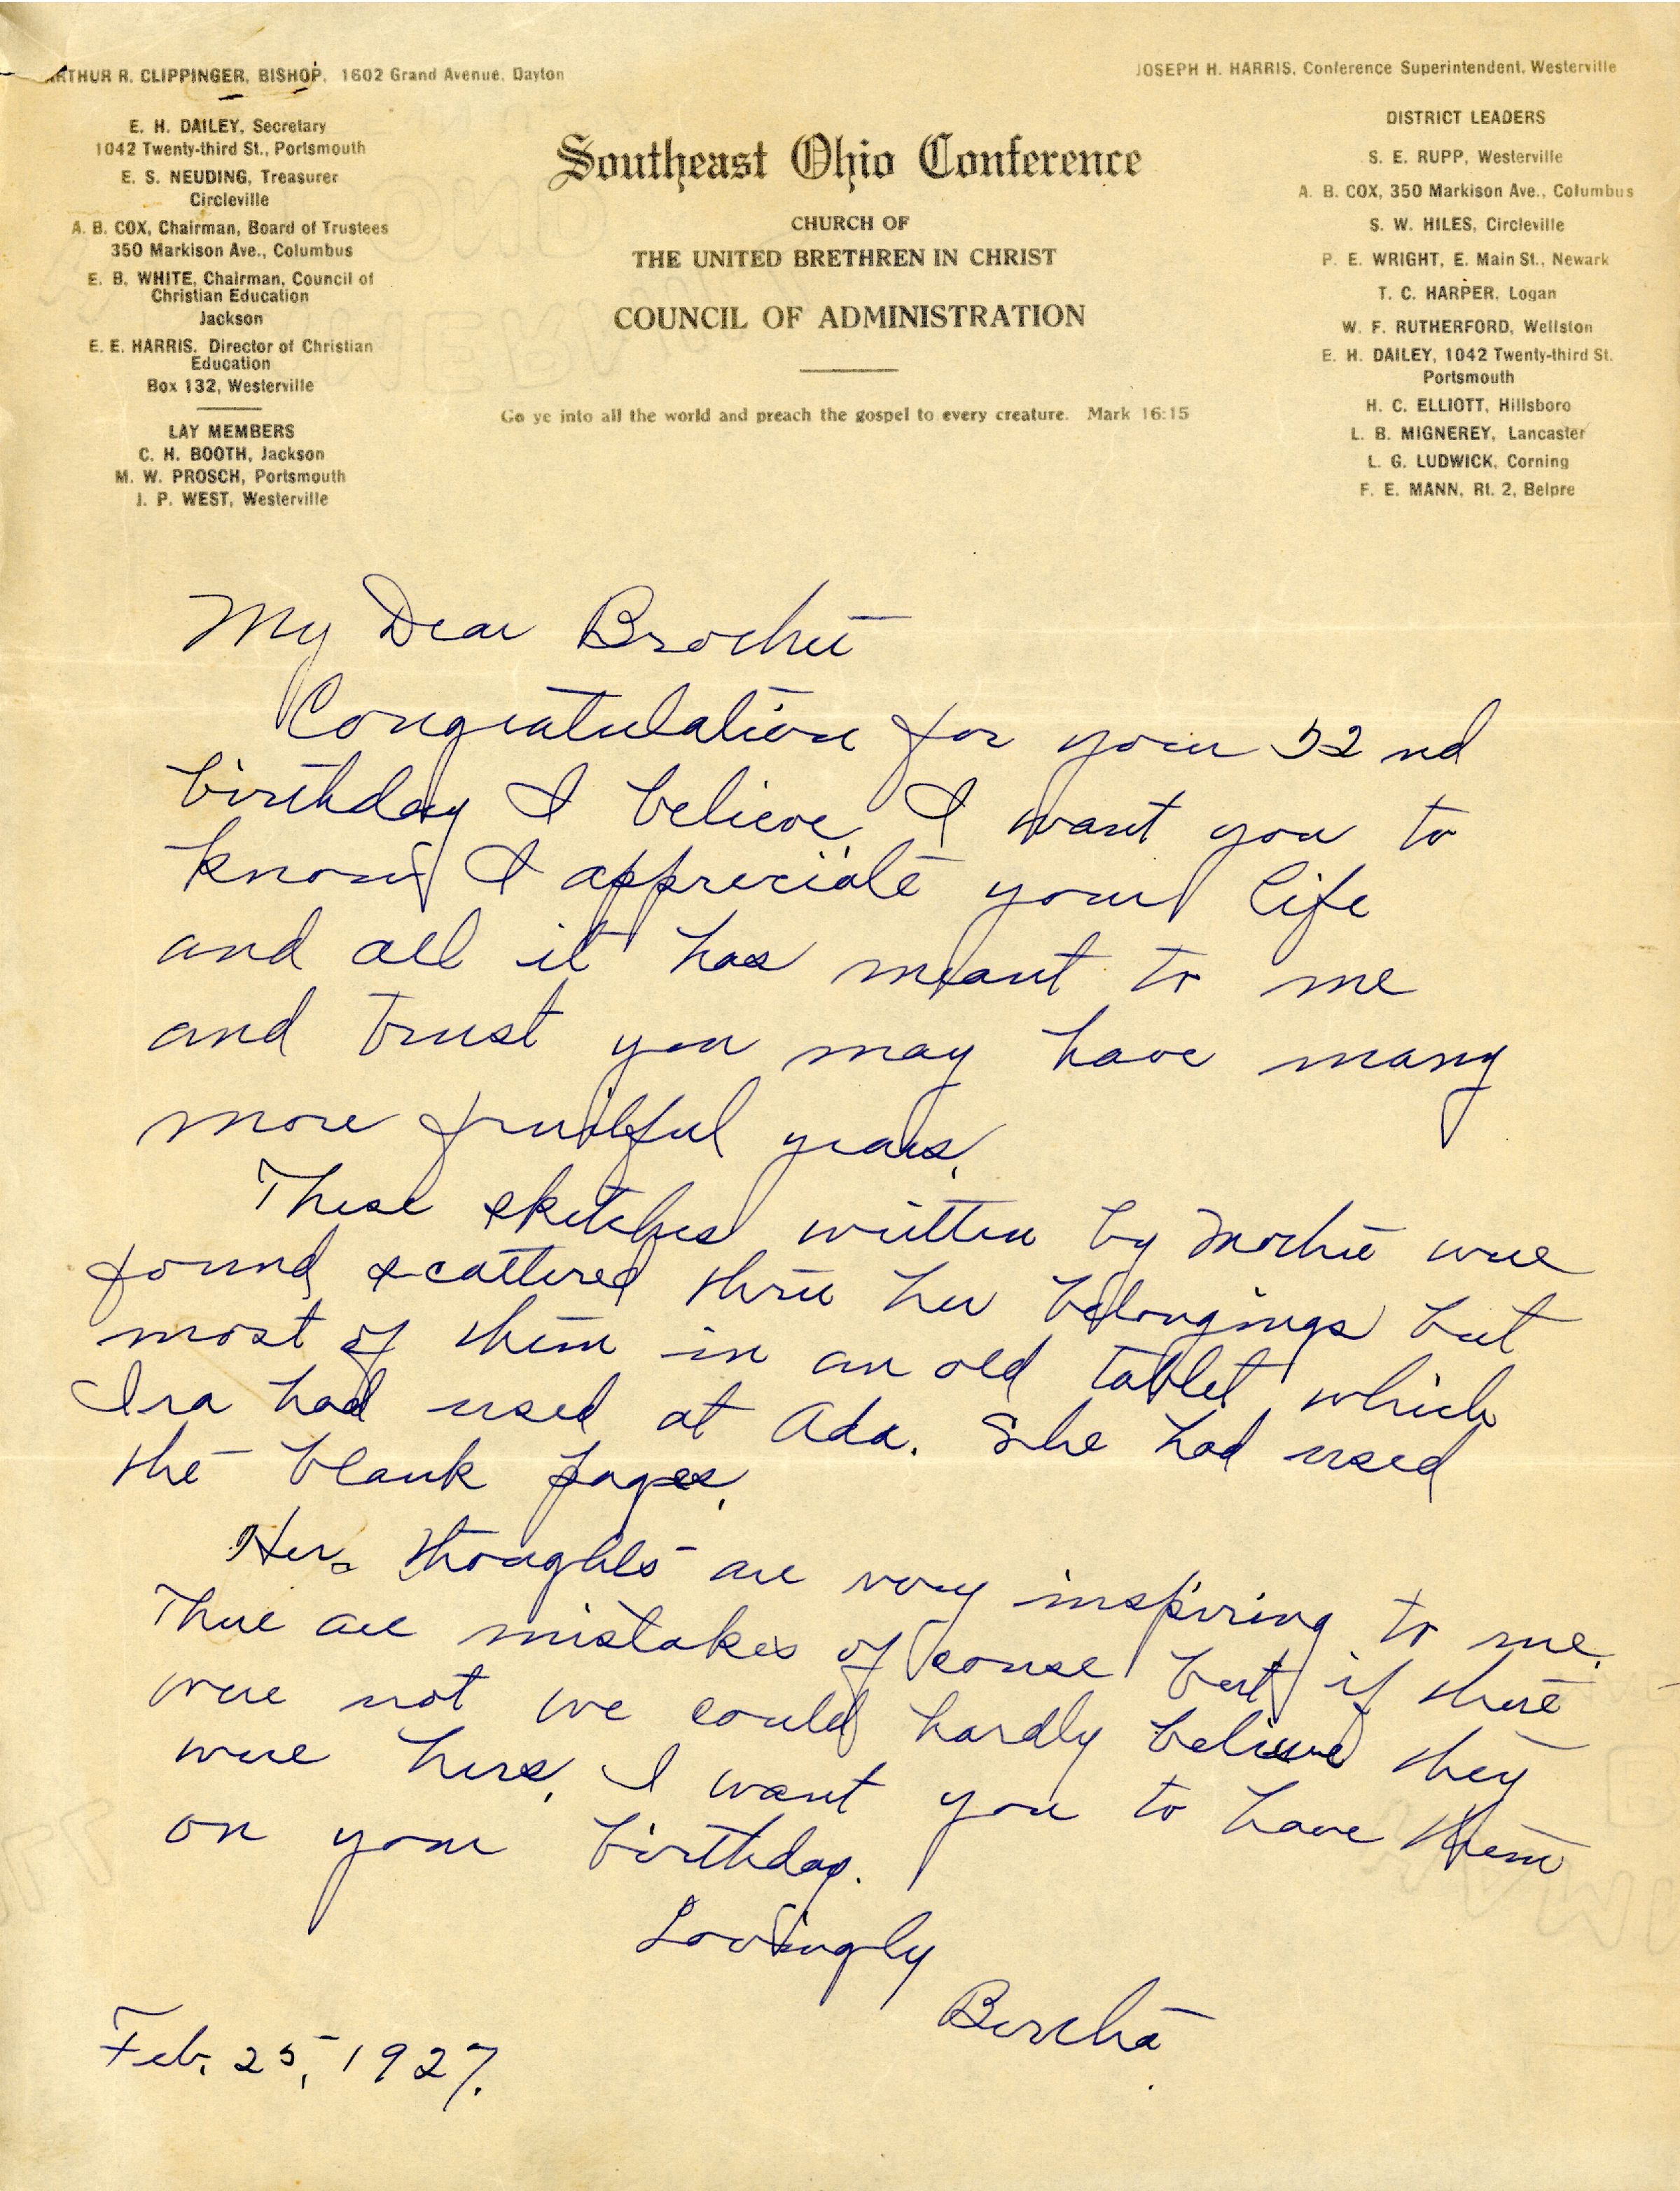 ARTHUR R. CLIPPINGER, BISHOP, 1602 Grand Avenue, Dayton
E. H. DAILEY, Secretary
1042 Twenty-third St., Portsmouth
E. S. NEUDING, Treasurer
Circleville
A. B. COX, Chairman, Board of Trustees
350 Markison Ave., Columbus
E. B. WHITE, Chairman, Council of
Christian Education
Jackson
E. E. HARRIS. Director of Christian
Education
Box 132, Westerville
LAY MEMBERS
C. H. BOOTH, Jackson
M. W. PROSCH, Portsmouth
J. P. WEST, Westerville
Southeast Ohio Conference
CHURCH OF
THE UNITED BRETHREN IN CHRIST
COUNCIL OF ADMINISTRATION
Go ye into all the world and preach the gospel to every creature. Mark 16:15
JOSEPH H. HARRIS, Conference Superintendent, Westerville
DISTRICT LEADERS
S. E. RUPP, Westerville
A. B. COX, 350 Markison Ave., Columbus
S. W. HILES, Circleville
P. E. WRIGHT, E. Main St., Newark
T. C. HARPER, Logan
W. F. RUTHERFORD, Wellston
E. H. DAILEY, 1042 Twenty-third St.
Portsmouth
H. C. ELLIOTT, Hillsboro
L. B. MIGNEREY, Lancaster
L. G. LUDWICK, Corning
F. E. MANN, Rt. 2, Belpre
My Dear Brother
Congratulation for your 52 nd
birthday I believe, I want you to
know I appreciate your life
and all it has meant to me
and trust you may have many
more fruitful years.
These sketches written by Mother were
found scattered thru her belongings but
most of them in an old tablet which
Ira had used at Ada. She had used
the blank pages.
Her thoughts are very inspiring to me.
There are mistakes of course but if there
were not we could hardly believe they
were hers. I want you to have them
on your birthday.
Lovingly
Bertha
Feb. 25, 1927.